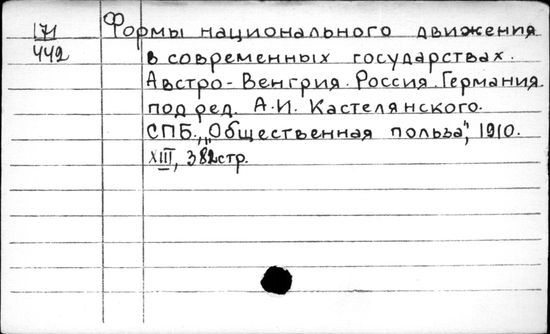 171
442
Формы национального движения
в современных государствах.
Австро-Венгрия. Россия. Германия
под ред. А.И. Кастелянского.
СПБ., „Общественная польза", 1910.
XIII, 382 стр.